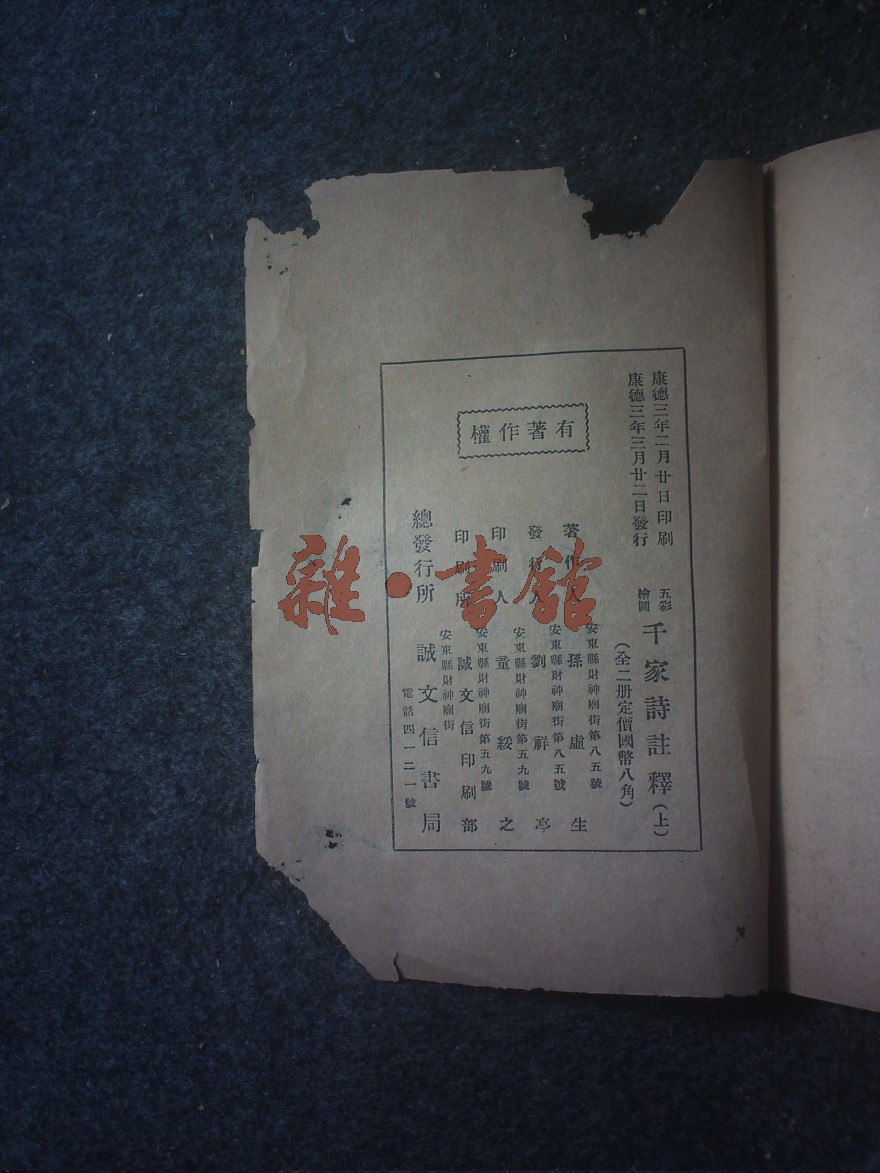 康德三年二月廿日印刷
康德三年三月廿二日發行
五彩
繪圖
千家詩註釋(上)
(全二册定價國幣八角)
有著作權
安東縣財神廟街第八五號
著作人 孫虛生
安東縣財神廟街第八五號
發行人 劉祥亭
安東縣財神廟街第五九號
印刷人 童綏之
安東縣財神廟街第五九號
印刷所 誠文信印刷部
安東縣財神廟街
總發行所 誠文信書局
電話四一二一號
雜·書舘